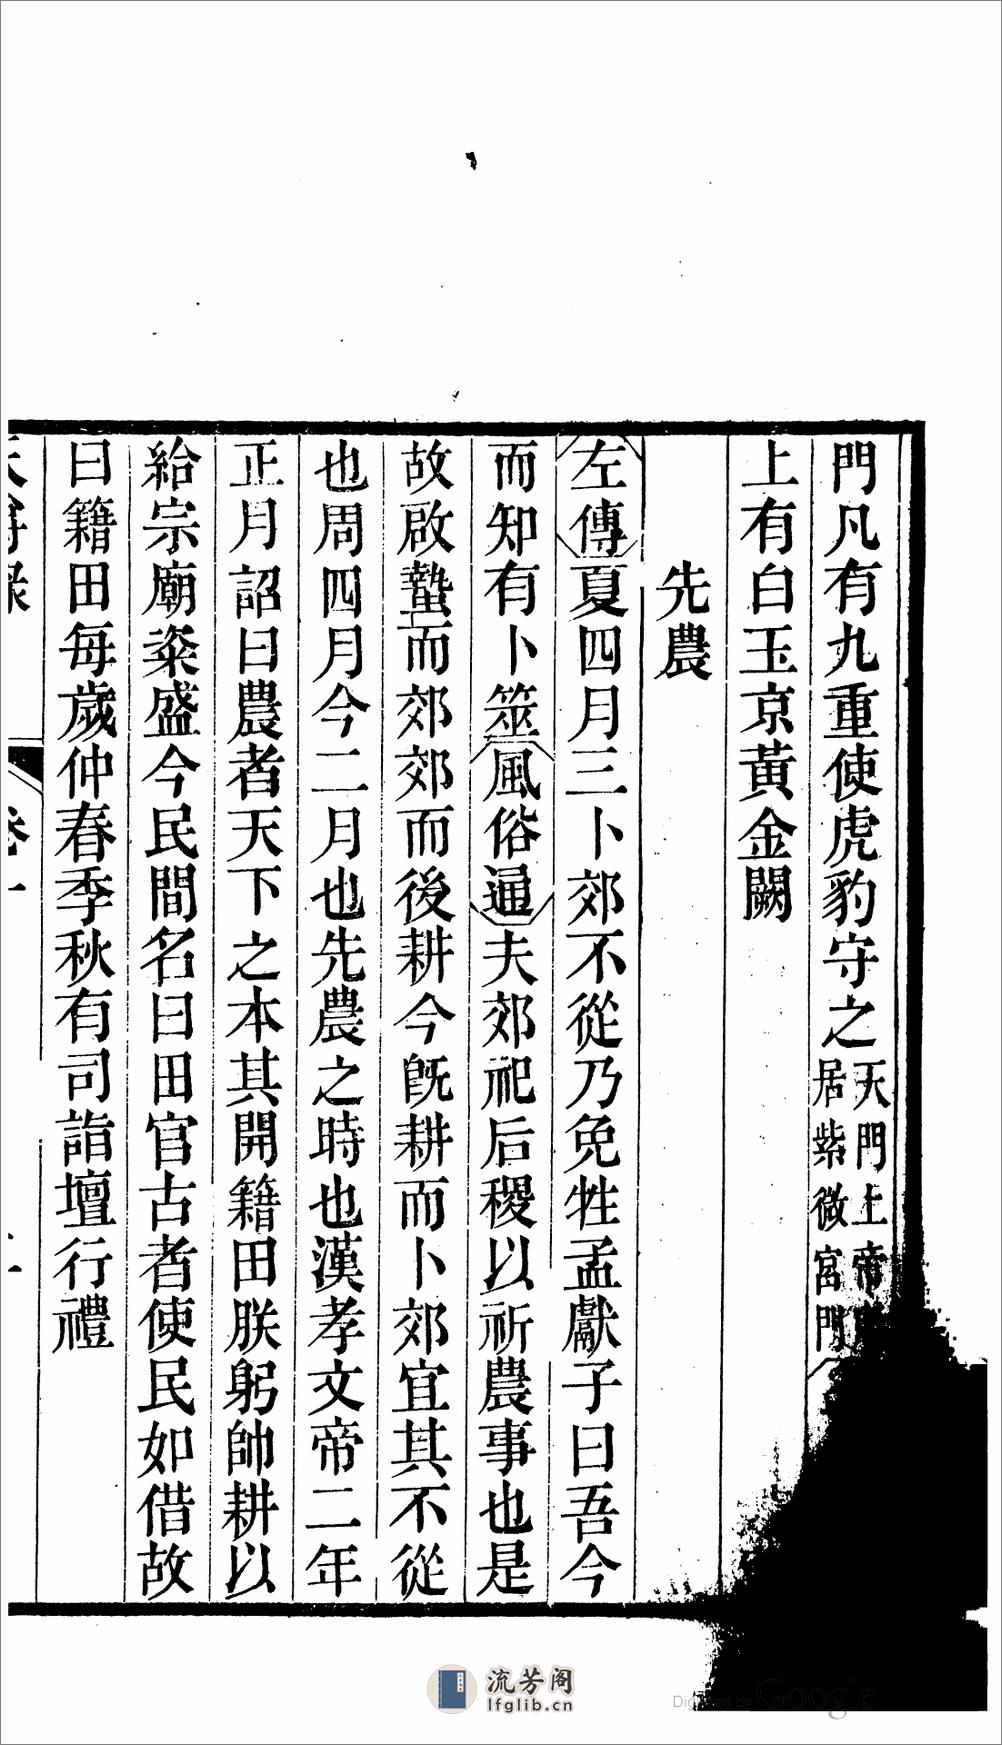 門凡有九重使虎豹守之天門上帝
居紫微宮門
上有白玉京黃金闕
先農
左傳夏四月三卜郊不從乃免牲孟獻子曰吾今
而知有卜筮風俗通夫郊祀后稷以祈農事也是
故啟蟄而郊郊而後耕今既耕而卜郊宜其不從
也周四月今二月也先農之時也漢孝文帝二年
正月詔曰農者天下之本其開籍田朕躬帥耕以
給宗廟粢盛今民間名曰田官古者使民如借故
曰籍田每歲仲春季秋有司詣壇行禮
卷一
流芳阁
lfglib.cn
Digitized by Google